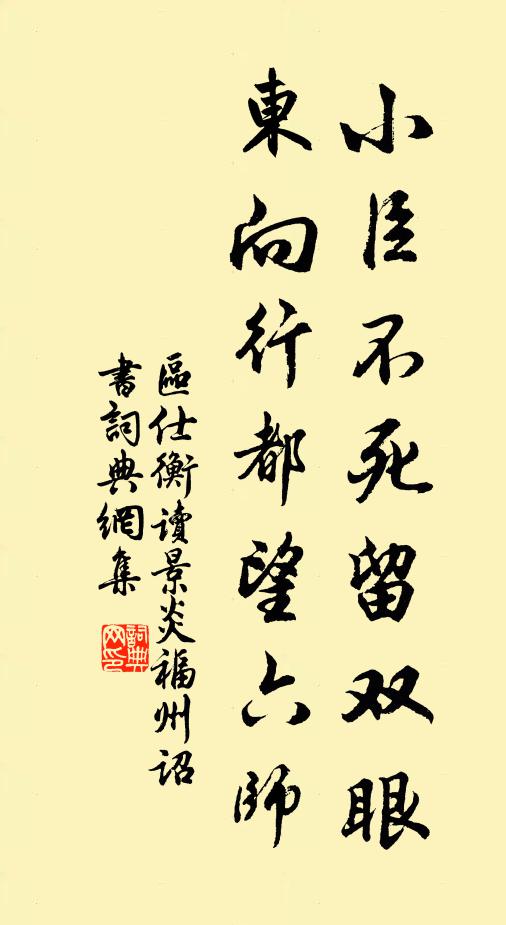 小臣不死留双眼
東向行都望六師
區仕衡讀景炎福州詔
書詞典網集
詞典
网印